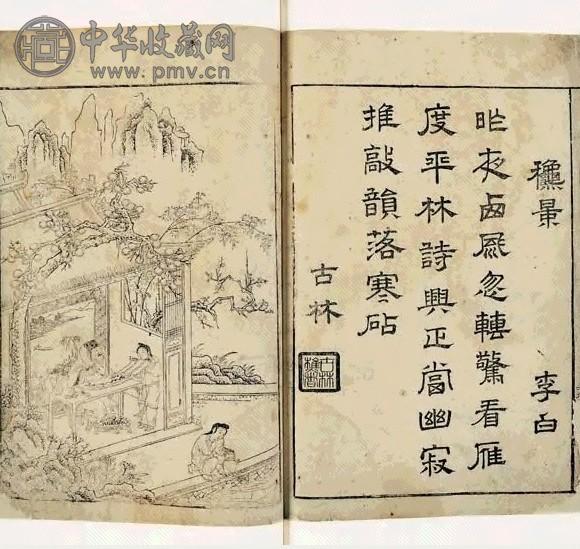 中华收藏网
www.pmv.cn
龝景
李白
昨夜卥凮忽轉驚看雁
度平林詩興正當幽寂
推敲韻落寒砧
古林
古林